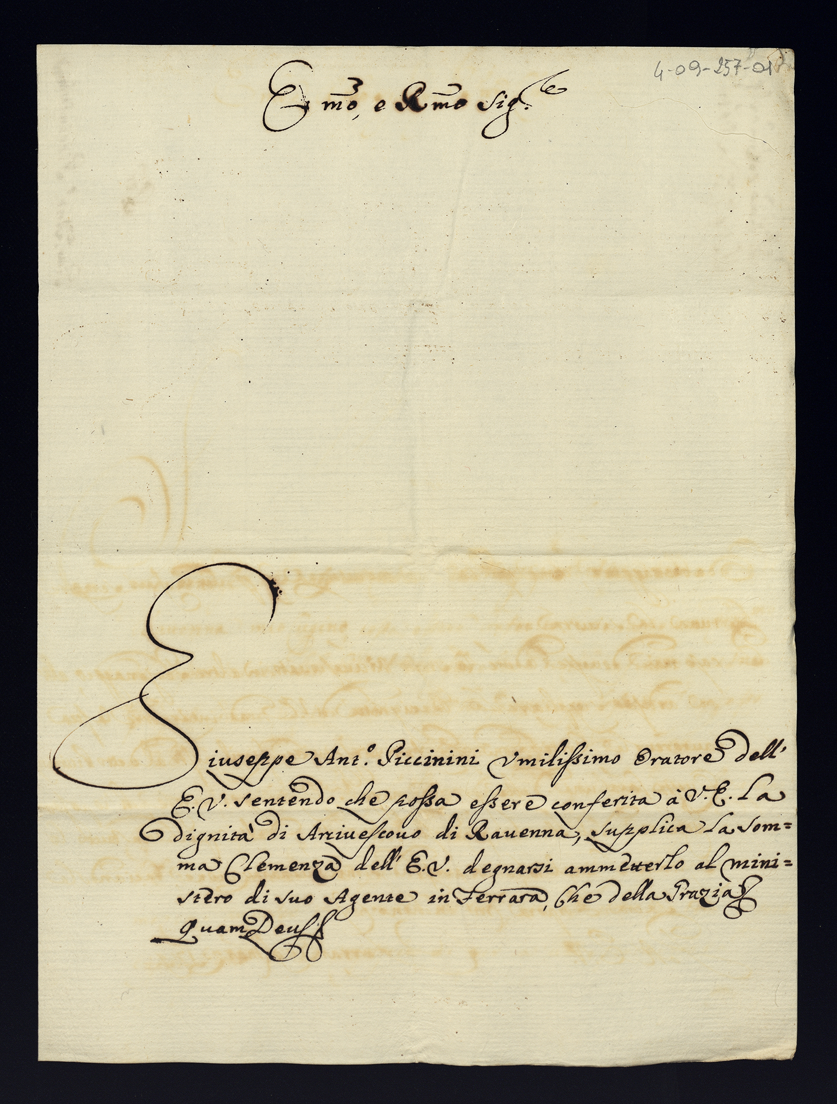 4-09-257-01
Emõ, e Rmõ Sig.re
Giuseppe Ant.o Piccinini Vmilissimo Oratore dell'
E.V. sentendo che possa essere conferita à V.E. La
dignità di Arciuescouo di Rauenna, supplica La som=
ma Clemenza dell' E.V. degnarsi ammetterlo al mini=
stero di suo Agente in Ferrara, Che della Grazia
Quam Deus